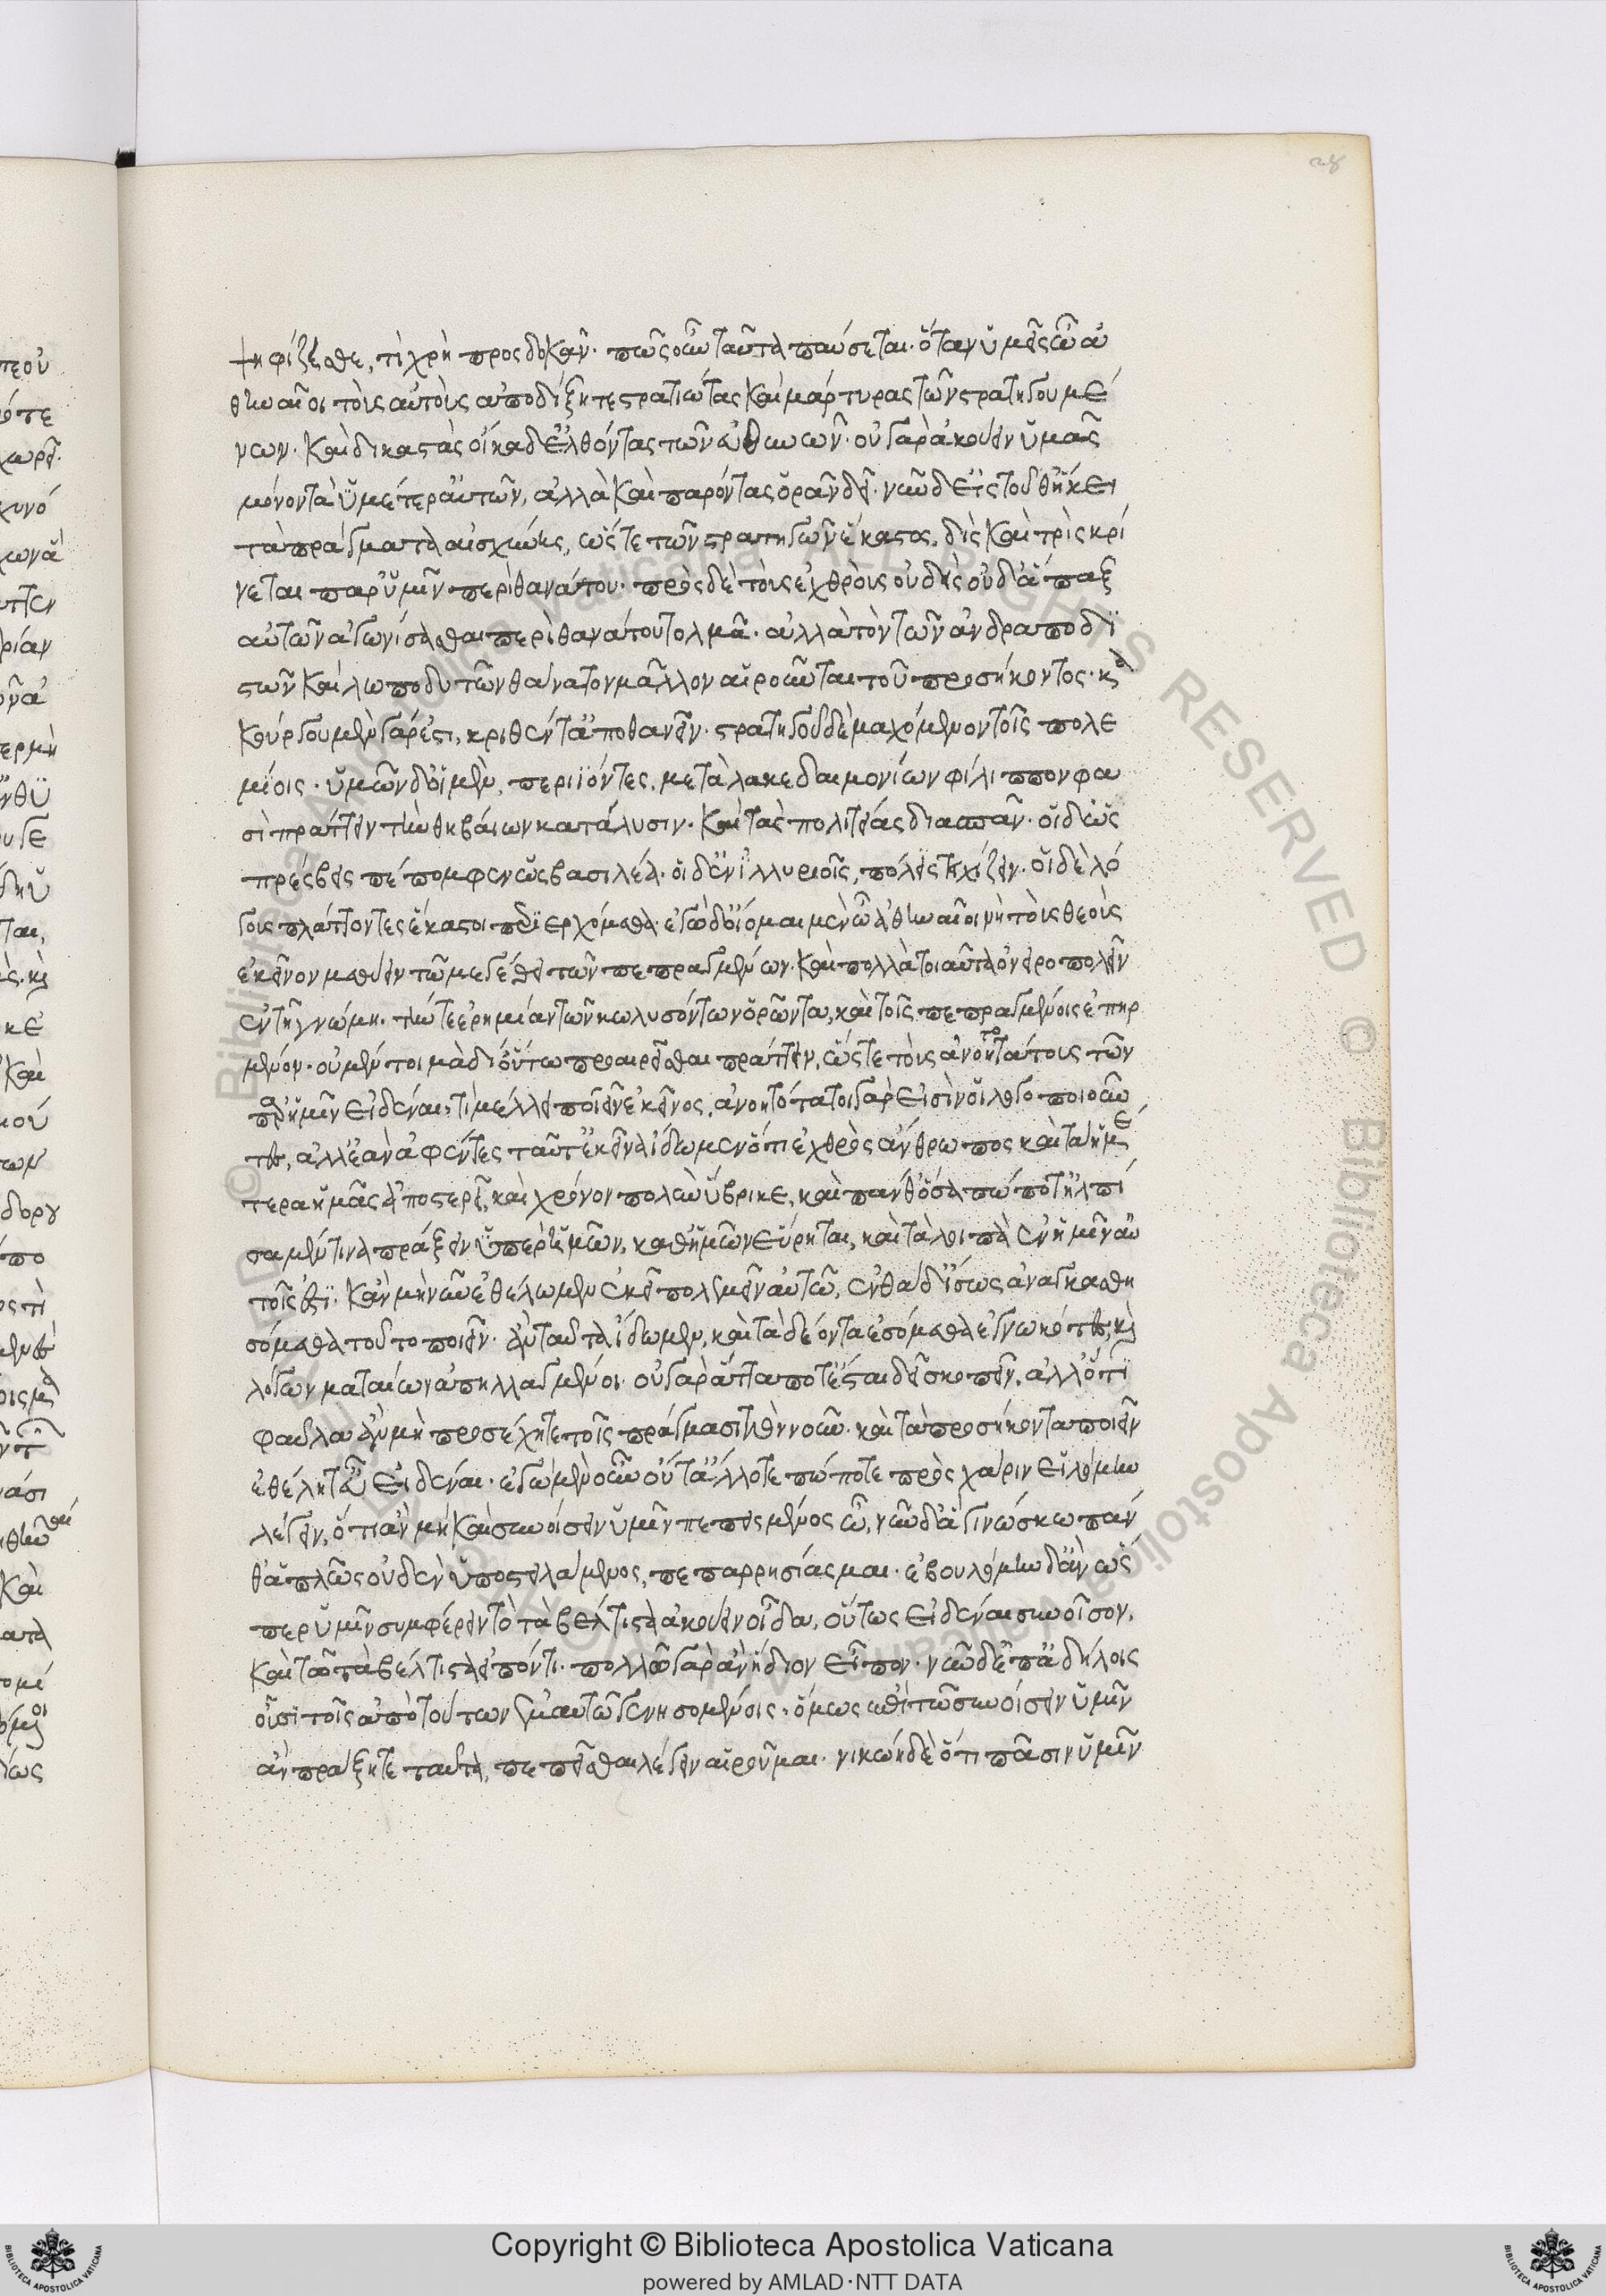 ψηφίζεσθε, τί χρὴ προσδοκᾶν. πῶς οὖν ταῦτα παύσεται. ὅταν ὑμεῖς ὦ ἀ
θηναῖοι τοὺς αὐτοὺς ἀποδείξητε στρατιώτας καὶ μάρτυρας τῶν στρατηγουμέ
νων. καὶ δικαστὰς οἴκαδ' ἐλθόντας τῶν εὐθυνῶν. οὐ γὰρ ἀκούειν ὑμᾶς
μόνον τὰ ὑμέτερ' αὐτῶν, ἀλλὰ καὶ παρόντας ὁρᾶν δεῖ. νῦν δ' εἰς τοῦθ' ἥκει
τὰ πράγματα αἰσχύνης, ὥστε τῶν στρατηγῶν ἕκαστος, δὶς καὶ τρὶς κρί
νεται παρ' ὑμῖν περὶ θανάτου. πρὸς δὲ τοὺς ἐχθροὺς οὐδεὶς οὐδ' ἅπαξ
αὐτῶν ἀγωνίσασθαι περὶ θανάτου τολμᾶ. ἀλλὰ τὸν τῶν ἀνδραποδι
στῶν καὶ λωποδυτῶν θάνατον μᾶλλον αἱροῦνται τοῦ προσήκοντος. κα
κούργου μὲν γάρ ἐστι, κριθέντ' ἀποθανεῖν. στρατηγοῦ δὲ μαχόμενον τοῖς πολε
μίοις. ὑμῶν δ' οἱ μὲν, περιϊόντες, μετὰ λακεδαιμονίων φίλιππον φα
σὶ πράττειν τὴν θηβαίων κατάλυσιν. καὶ τὰς πολιτείας διασπᾶν. οἱ δ' ὡς
πρέσβεις πέπομφεν ὡς βασιλέα. οἱ δ' ἐν ἰλλυριοῖς, πόλεις τειχίζειν. οἱ δὲ λό
γους πλάττοντες ἕκαστοι περιερχόμεθα. ἐγὼ δ' οἴομαι μὲν ὦ ἀθηναῖοι νὴ τοὺς θεοὺς
ἐκεῖνον μεθύειν τῶ μεγέθει τῶν πεπραγμένων. καὶ πολλὰ τοιαῦτα ὀνειροπολεῖν
ἐν τῆ γνώμη. τήν τε ἐρημίαν τῶν κωλυσόντων ὁρῶντα, καὶ τοῖς πεπραγμένοις ἐπηρ
μένον. οὐ μέντοι μὰ δί' οὕτω προαιρεῖσθαι πράττειν, ὥστε τοὺς ἀνοητοτάτους τῶν
παρ' ἡμῖν εἰδέναι, τί μέλλει ποιεῖν ἐκεῖνος, ἀνοητότατοι γάρ εἰσιν οἱ λογοποιοῦν
τες, ἀλλ' ἐὰν ἀφέντες ταῦτ' ἐκεῖνα εἰδῶμεν ὅτι ἐχθρὸς ἄνθρωπος καὶ τὰ ἡμέ
τερα ἡμᾶς ἀποστερεῖ, καὶ χρόνον πολὺν ὕβρικε, καὶ πάνθ' ὅσα πώποτ' ἠλπί
σαμέν τινα πράξειν ὑπὲρ ἡμῶν, καθ' ἡμῶν εὕρηται, καὶ τὰ λοιπὰ ἐν ἡμῖν αὐ
τοῖς ἐστί. κἂν μὴ νῦν ἐθέλωμεν ἐκεῖ πολεμεῖν αὐτῶ, ἐνθάδ' ἴσως ἀναγκασθη
σόμεθα τοῦτο ποιεῖν. ἂν ταῦτα εἰδῶμεν, καὶ τὰ δέοντα ἐσόμεθα ἐγνωκότες, καὶ
λόγων ματαίων ἀπηλλαγμένοι. οὐ γὰρ ἅττα ποτ' ἔσται δεῖ σκοπεῖν, ἀλλ' ὅτι
φαῦλα ἂν μὴ προσέχητε τοῖς πράγμασι τὸν νοῦν. καὶ τὰ προσήκοντα ποιεῖν
ἐθέλητ' εὖ εἰδέναι. ἐγὼ μὲν οὖν οὔτ' ἄλλοτε πώποτε πρὸς χάριν εἱλόμην
λέγειν, ὅτι ἂν μὴ καὶ συνοίσειν ὑμῖν πεπεισμένος ὦ, νῦν δ' ἃ γινώσκω πάν
θ' ἁπλῶς οὐδὲν ὑποστειλάμενος, πεπαρρησίασμαι. ἐβουλόμην δ' ἂν ὥσ
περ ὑμῖν συμφέρειν τὸ τὰ βέλτιστα ἀκούειν οἶδα, οὕτως εἰδέναι συνοῖσον,
καὶ τῶ τὰ βέλτιστα εἰπόντι. πολλῶ γὰρ ἂν ἥδιον εἶπον. νῦν δ' ἐπ' ἀδήλοις
οὖσι τοῖς ἀπὸ τούτων ἐμαυτῶ γενησομένοις. ὅμως ἐπὶ τῶ συνοίσειν ὑμῖν
ἂν πράξητε ταῦτα, πεπεῖσθαι λέγειν αἱροῦμαι. νικώη δὲ ὅτι πᾶσιν ὑμῖν